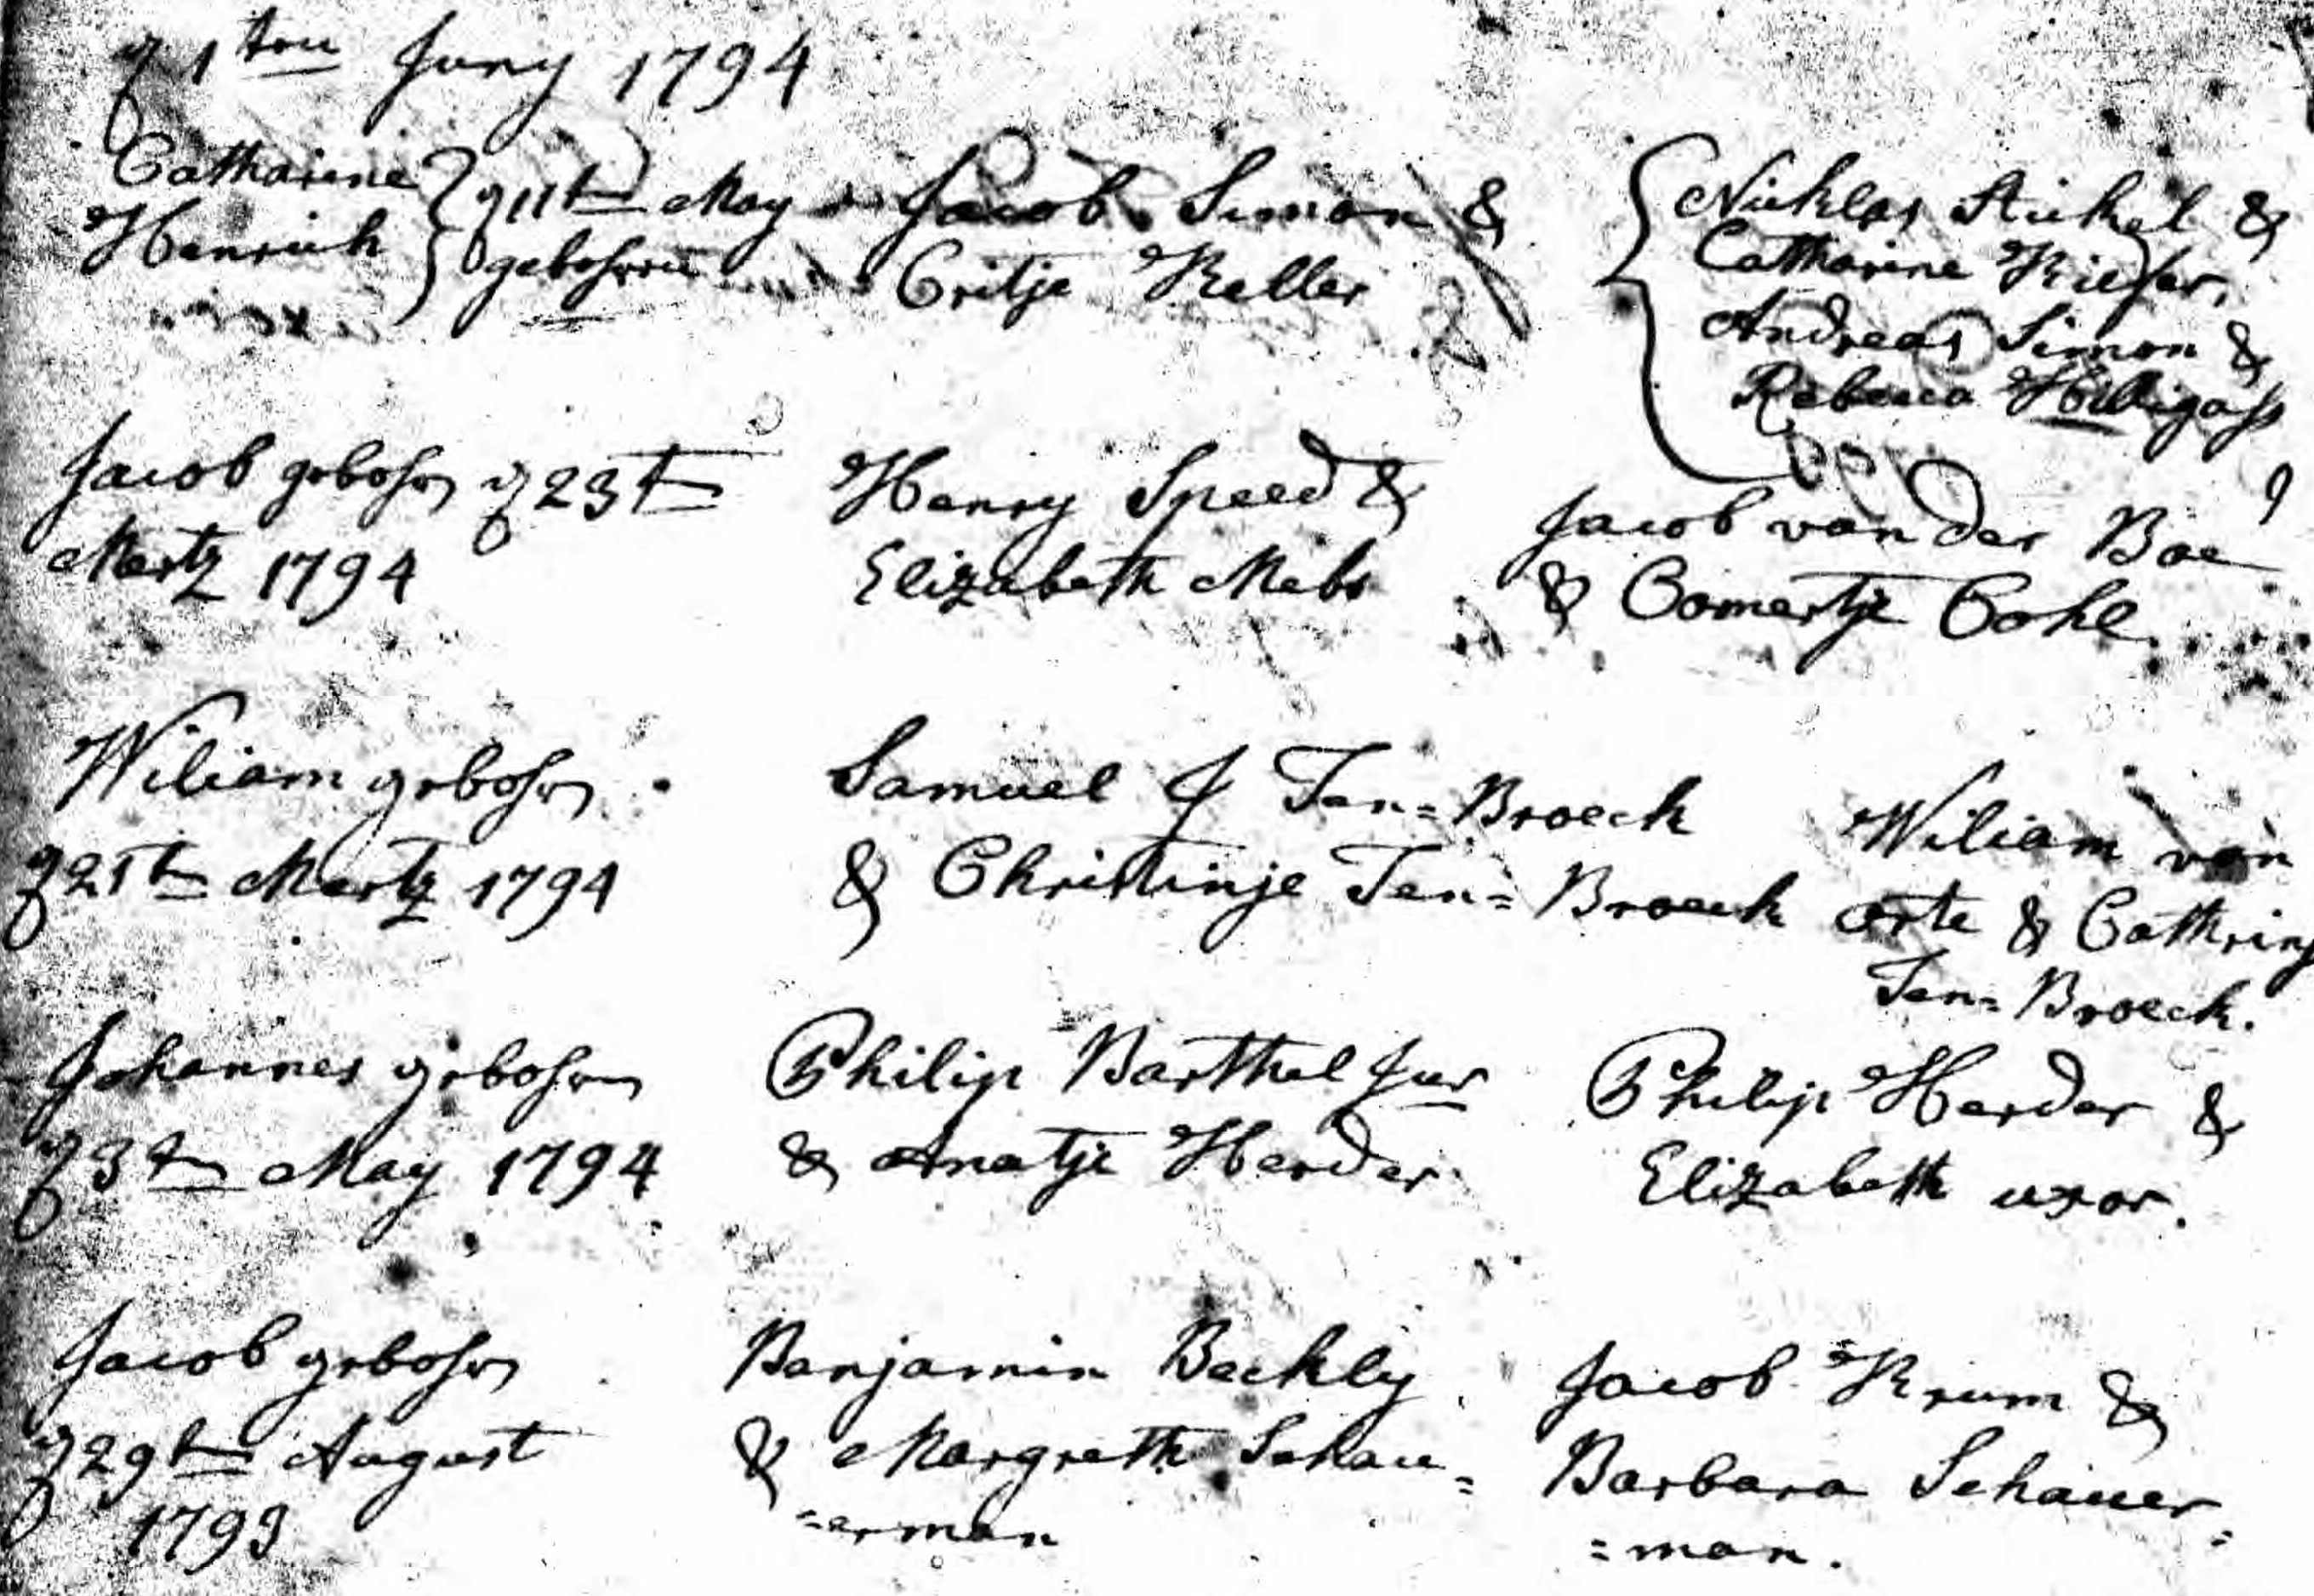 1ten Juny 1794
Catharine
Henrich
11ten May
gebohren
Jacob Simon &
Critje Keller
Nicklas Stickel &
Catharine Kiefer,
Andreas Simon &
Rebecca Hilligass
Jacob gebohren d 23ten
Mertz 1794
Henry Speed &
Elizabeth Mebs
Jacob van der Boe
& Comertje Cohl
Wiliam gebohren
d 21ten Mertz 1794
Samuel J Ten=Broeck
& Christinje Ten=Broeck
Wiliam van
orte & Cathrin
Ten=Broeck.
Johannes gebohren
d 3ten May 1794
Philip Barthel Jur
& Anatje Herder
Philip Herder &
Elizabeth uxor.
Jacob gebohren
d 29ten August
1793
Benjamin Beckly
& Margreth Schau=
=erman
Jacob Krum &
Barbara Schauer=
=man.